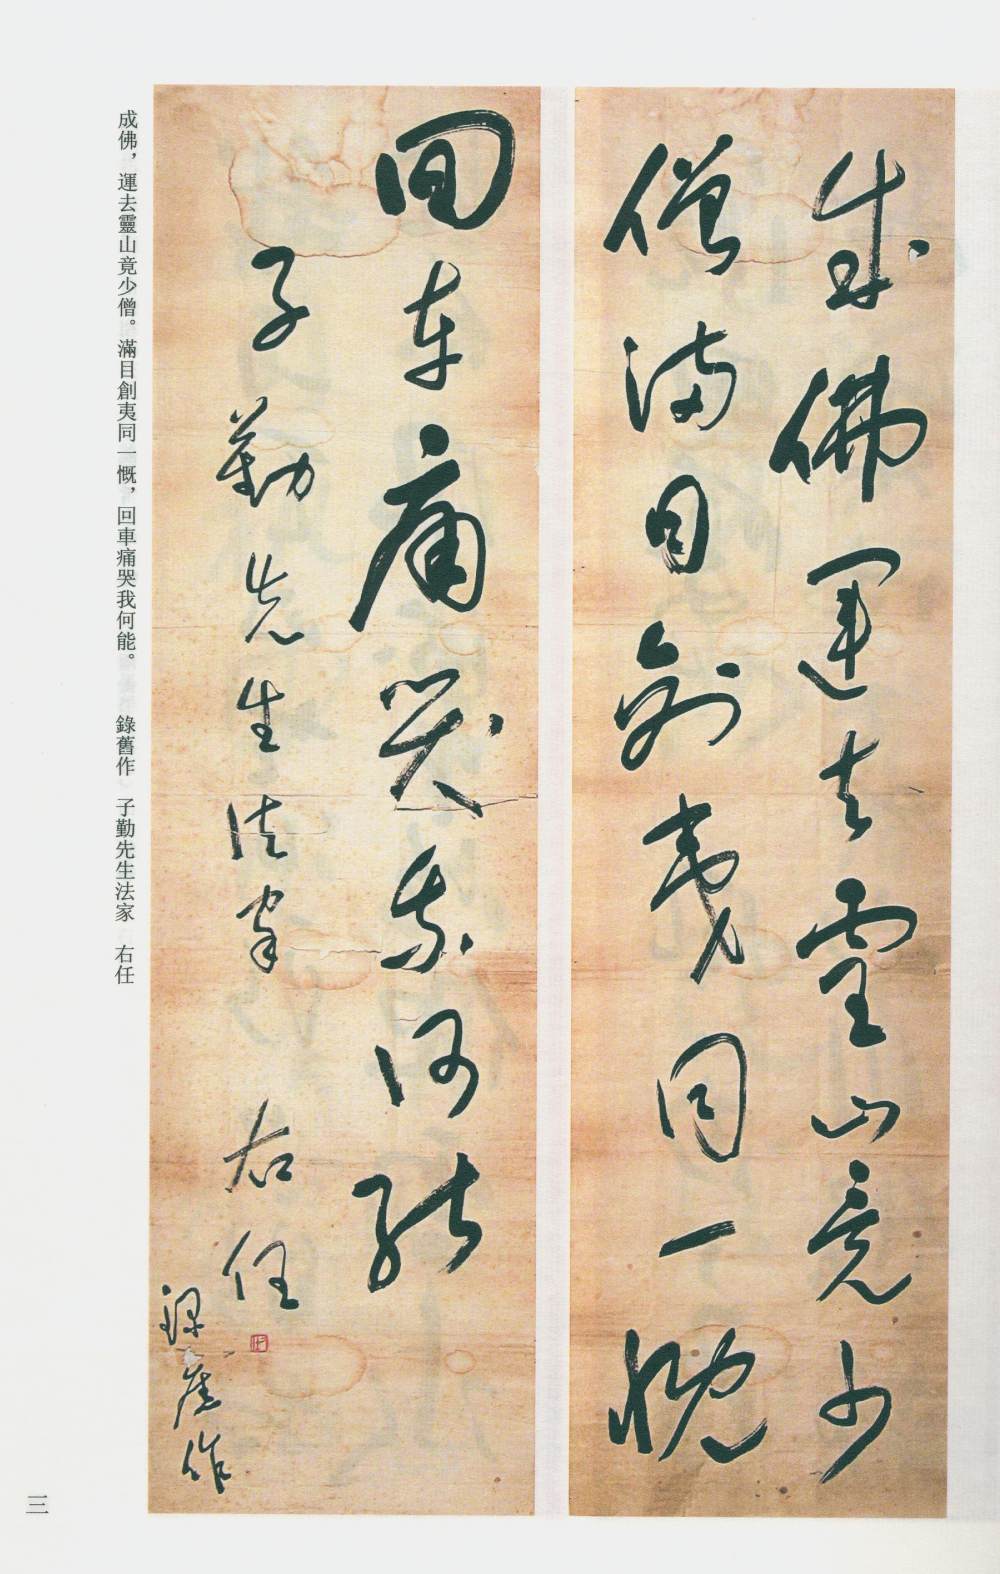 成佛運去靈山竟少
僧滿目創夷同一慨
回車痛哭我何能
子勤先生法家 右任
錄舊作
成佛，運去靈山竟少僧。滿目創夷同一慨，回車痛哭我何能。 錄舊作 子勤先生法家 右任
三